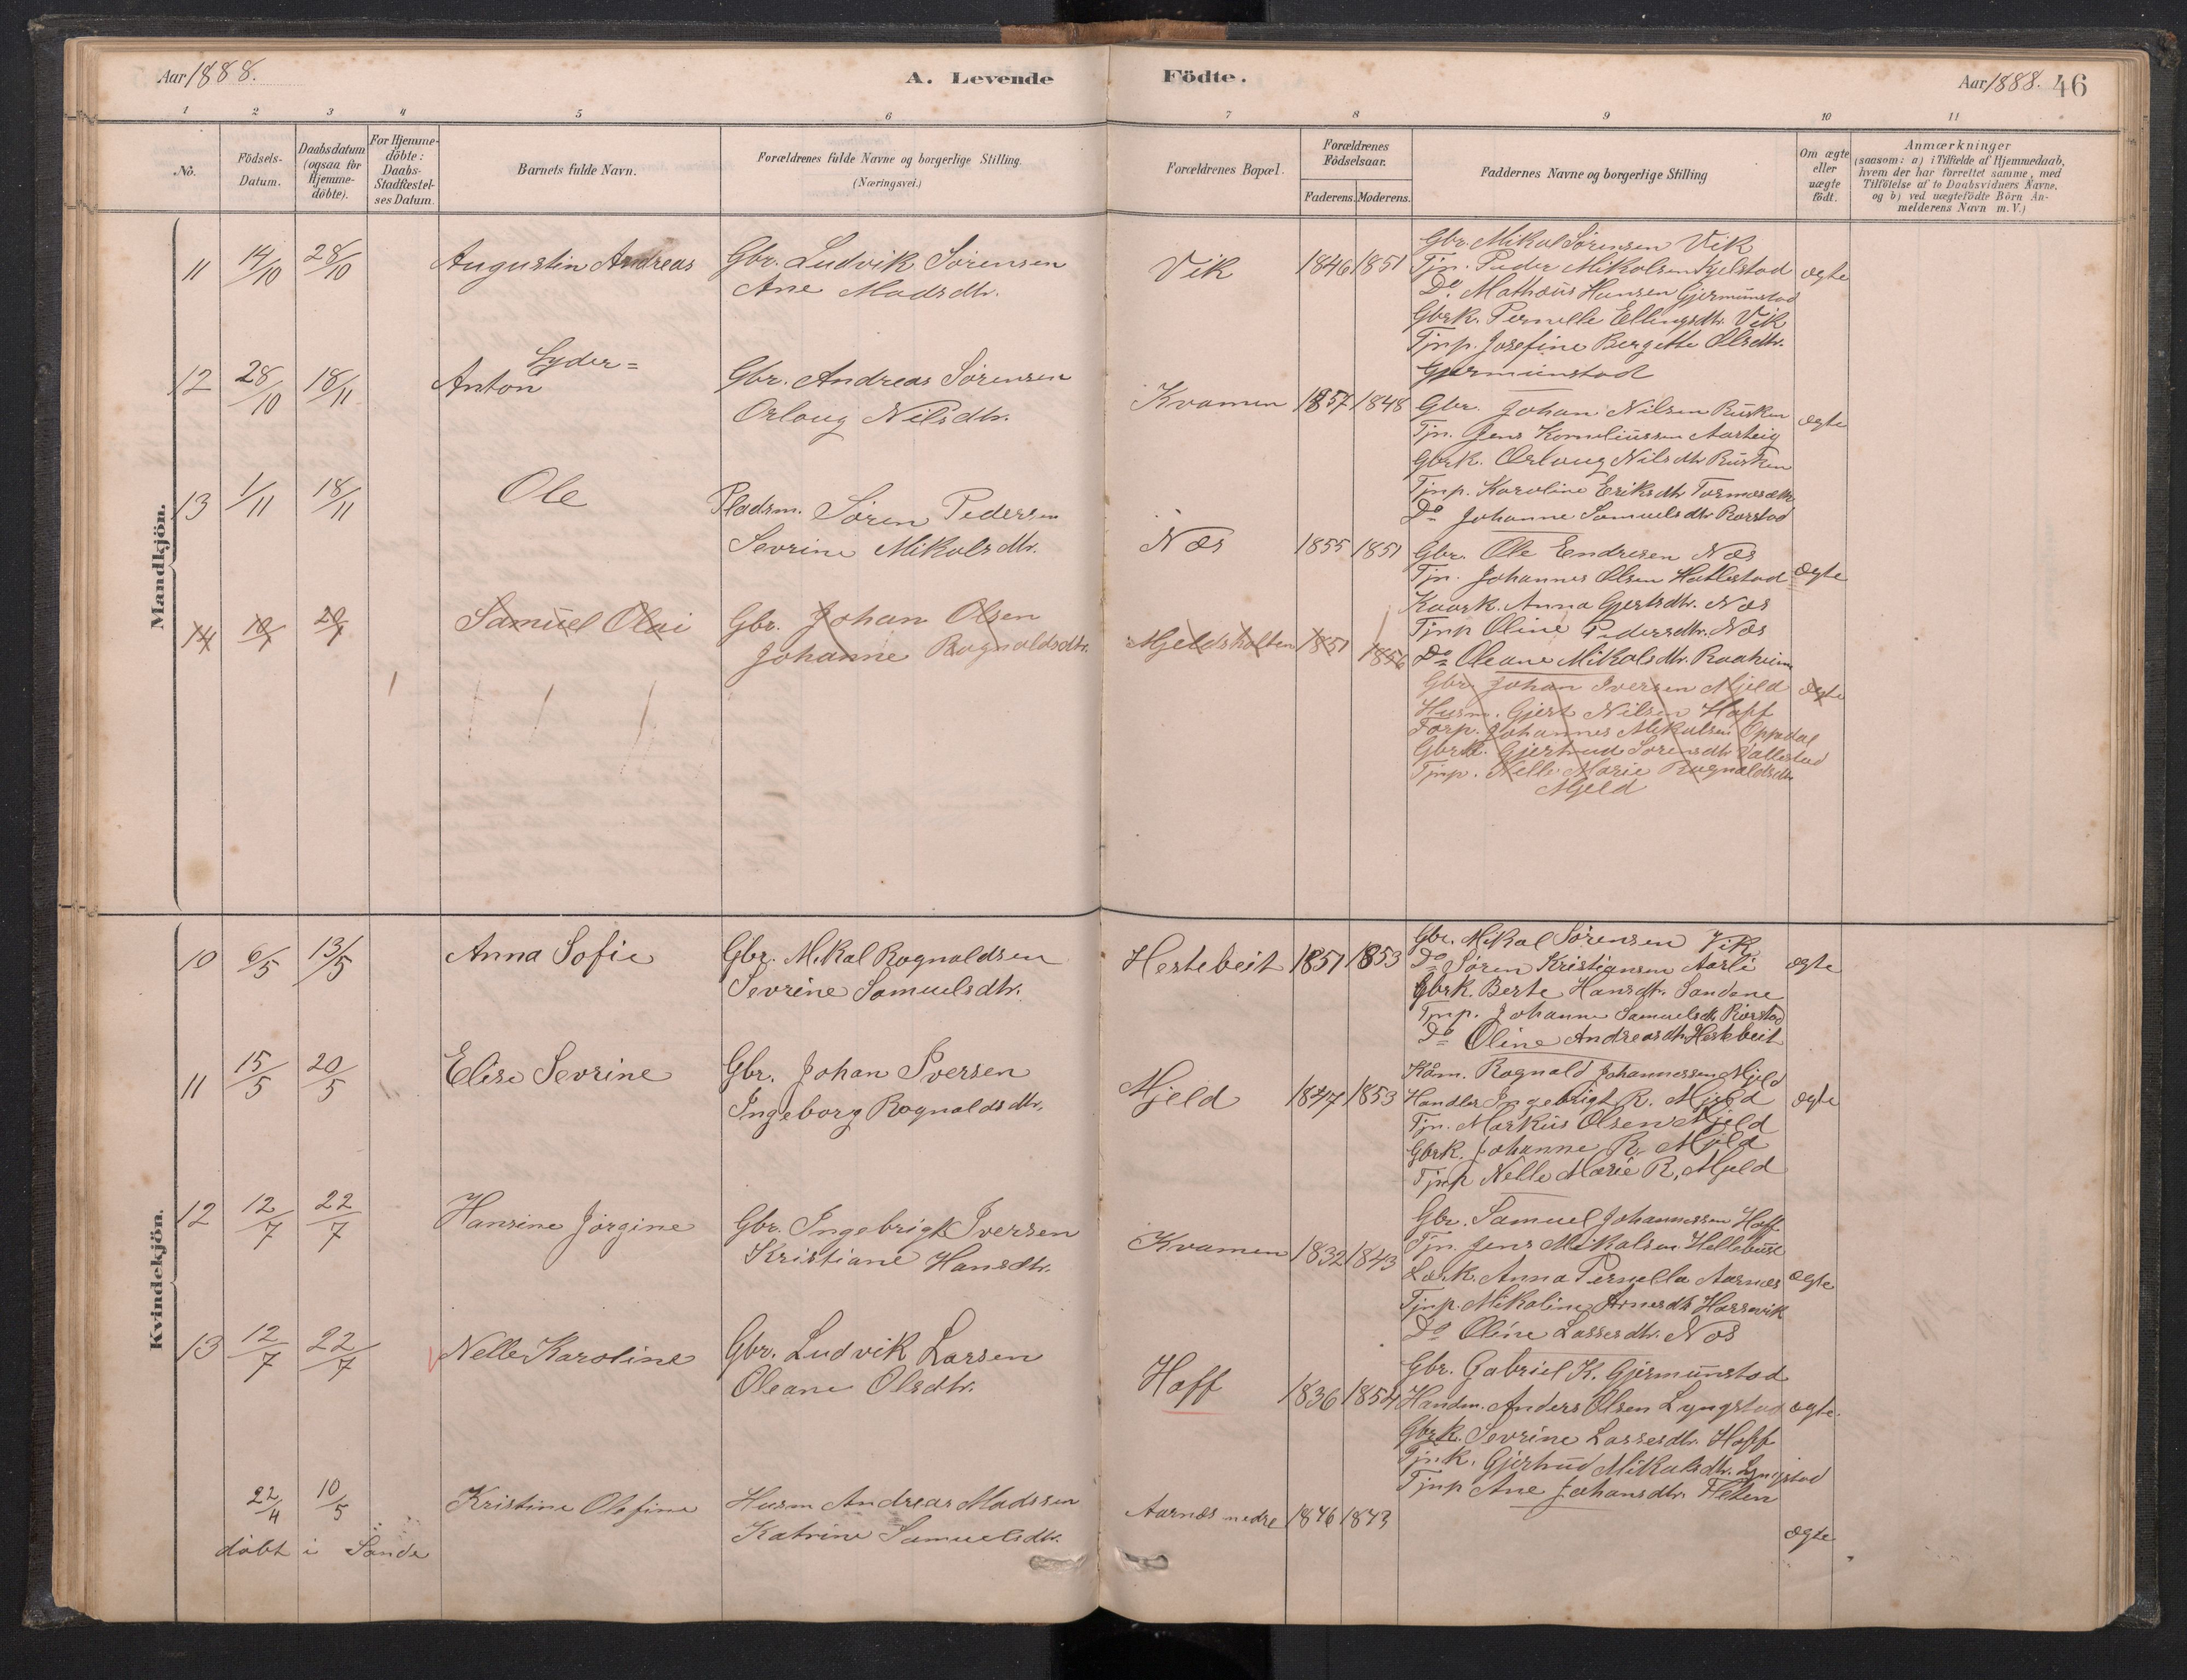 Aar 1888.
A. Levende
Födte.
Aar 1888. 46
1 2 3 4 5 6 7 8 9 10 11
No.
Födsels-Datum.
Daabsdatum (ogsaa for Hjemme-döbte).
For Hjemme-döbte: Daabs-Stadfæstel-ses Datum.
Barnets fulde Navn.
Forældrenes fulde Navne og borgerlige Stilling.
(Næringsvei.)
Forældrenes Bopæl.
Forældrenes Födselsaar.
Faderens. Moderens.
Faddernes Navne og borgerlige Stilling
Om ægte eller uægte födt.
Anmærkninger
(saasom: a) i Tilfælde af Hjemmedaab, hvem der har forrettet samme, med Tilföielse af to Daabsvidners Navne, og b) ved uægtefödte Börn An-melderens Navn m. V.)
Mandkjön.
11 14/10 28/10 Augustin Andreas
Gbr. Ludvik Sörensen
Ane Madsdtr.
Vik 1846 1851
Gbr. Mikal Sörensen Vik
Tjn. Peder Mikalsen Kjelstad
Do. Mathæus Hansen Gjermunstad
Gbrk. Pernelle Ellingsdtr. Vik
Tjnp. Josefine Bergette Olsdtr.
Gjermunstad
ægte
12 28/10 18/11 Anton Lyder=
Gbr. Andreas Sörensen
Orloug Nilsdtr.
Kvamen 1857 1848
Gbr. Johan Nilsen Rusken
Tjn. Jens Korneliussen Aarteig
Gbrk. Orloug Nilsdtr Rusken
Tjnp. Karoline Eriksdtr
Do Johanne Samuelsdtr Rorstad
ægte
13 1/11 18/11 Ole
Pladsm. Sören Pedersen
Sevrine Mikalsdtr.
Næs 1855 1851
Gbr. Ole Endresen Næs
Tjn. Johannes Olsen Hatlestad
Kaark. Anna Gjertsdtr. Næs
Tjnp Oline Pedersdtr. Næs
Do Oleane Mikalsdtr. Raaheim
ægte
14 Samuel Olai
Gbr. Johan Olsen
Johanne Rognaldsdtr.
Mjeldsholten 1851 1856
Gbr. Johan Iversen Mjeld
Husm. Gjert Nilsen Hoff
Forp. Johannes Mikalsen Oppedal
Gbrk. Gjertrud Sörensdtr Vallestad
Tjnp. Nelle Marie Rognaldsdtr
Mjeld
ægte
Kvindekjön.
10 6/5 13/5 Anna Sofie
Gbr. Mikal Rognaldsen
Sevrine Samuelsdtr.
Hestebeit 1851 1853
Gbr. Mikal Sörensen Vik
Do Sören Kristiansen Aarli
Gbrk. Berte Hansdtr. Sandene
Tjnp. Johanne Samuelsdtr Rörstad
Do Oline Andreasdtr Hestebeit
ægte
11 15/5 20/5 Elise Sevrine
Gbr. Johan Iversen
Ingeborg Rognaldsdtr.
Mjeld 1847 1853
Kåm. Rognald Johannessen Mjeld
Handler Ingebrigt R. Mjeld
Tjn. Markus Olsen Mjeld
Gbrk. Johanne R. Mjeld
Tjnp Nelle Marie R. Mjeld
ægte
12 12/7 22/7 Hansine Jörgine
Gbr. Ingebrigt Iversen
Kristiane Hansdtr.
Kvamen 1832 1843
Gbr. Samuel Johannessen Hoff
Tjn. Jens Mikalsen Hellebust
Lærk. Anna Pernella Aarnes
Tjnp. Mikaline Arnesdtr Hassevik
Do Oline Lassesdtr. Næs
ægte
13 12/7 22/7 Nelle Karoline
Gbr. Ludvik Larsen
Oleane Olsdtr.
Hoff 1836 1854
Gbr. Gabriel K. Gjermunstad
Handm. Anders Olsen Lyngstad
Gbrk. Sevrine Lassesdtr. Hoff
Tjnk. Gjertrud Mikalsdtr. Lyngstad
Tjnp Ane Johansdtr. Fleten
ægte.
22/4 10/5 Kristine Olefine
Husm Andreas Madssen
Katrine Samuelsdtr.
Aarnæs nedre 1846 1843
ægte
döbt i Sande